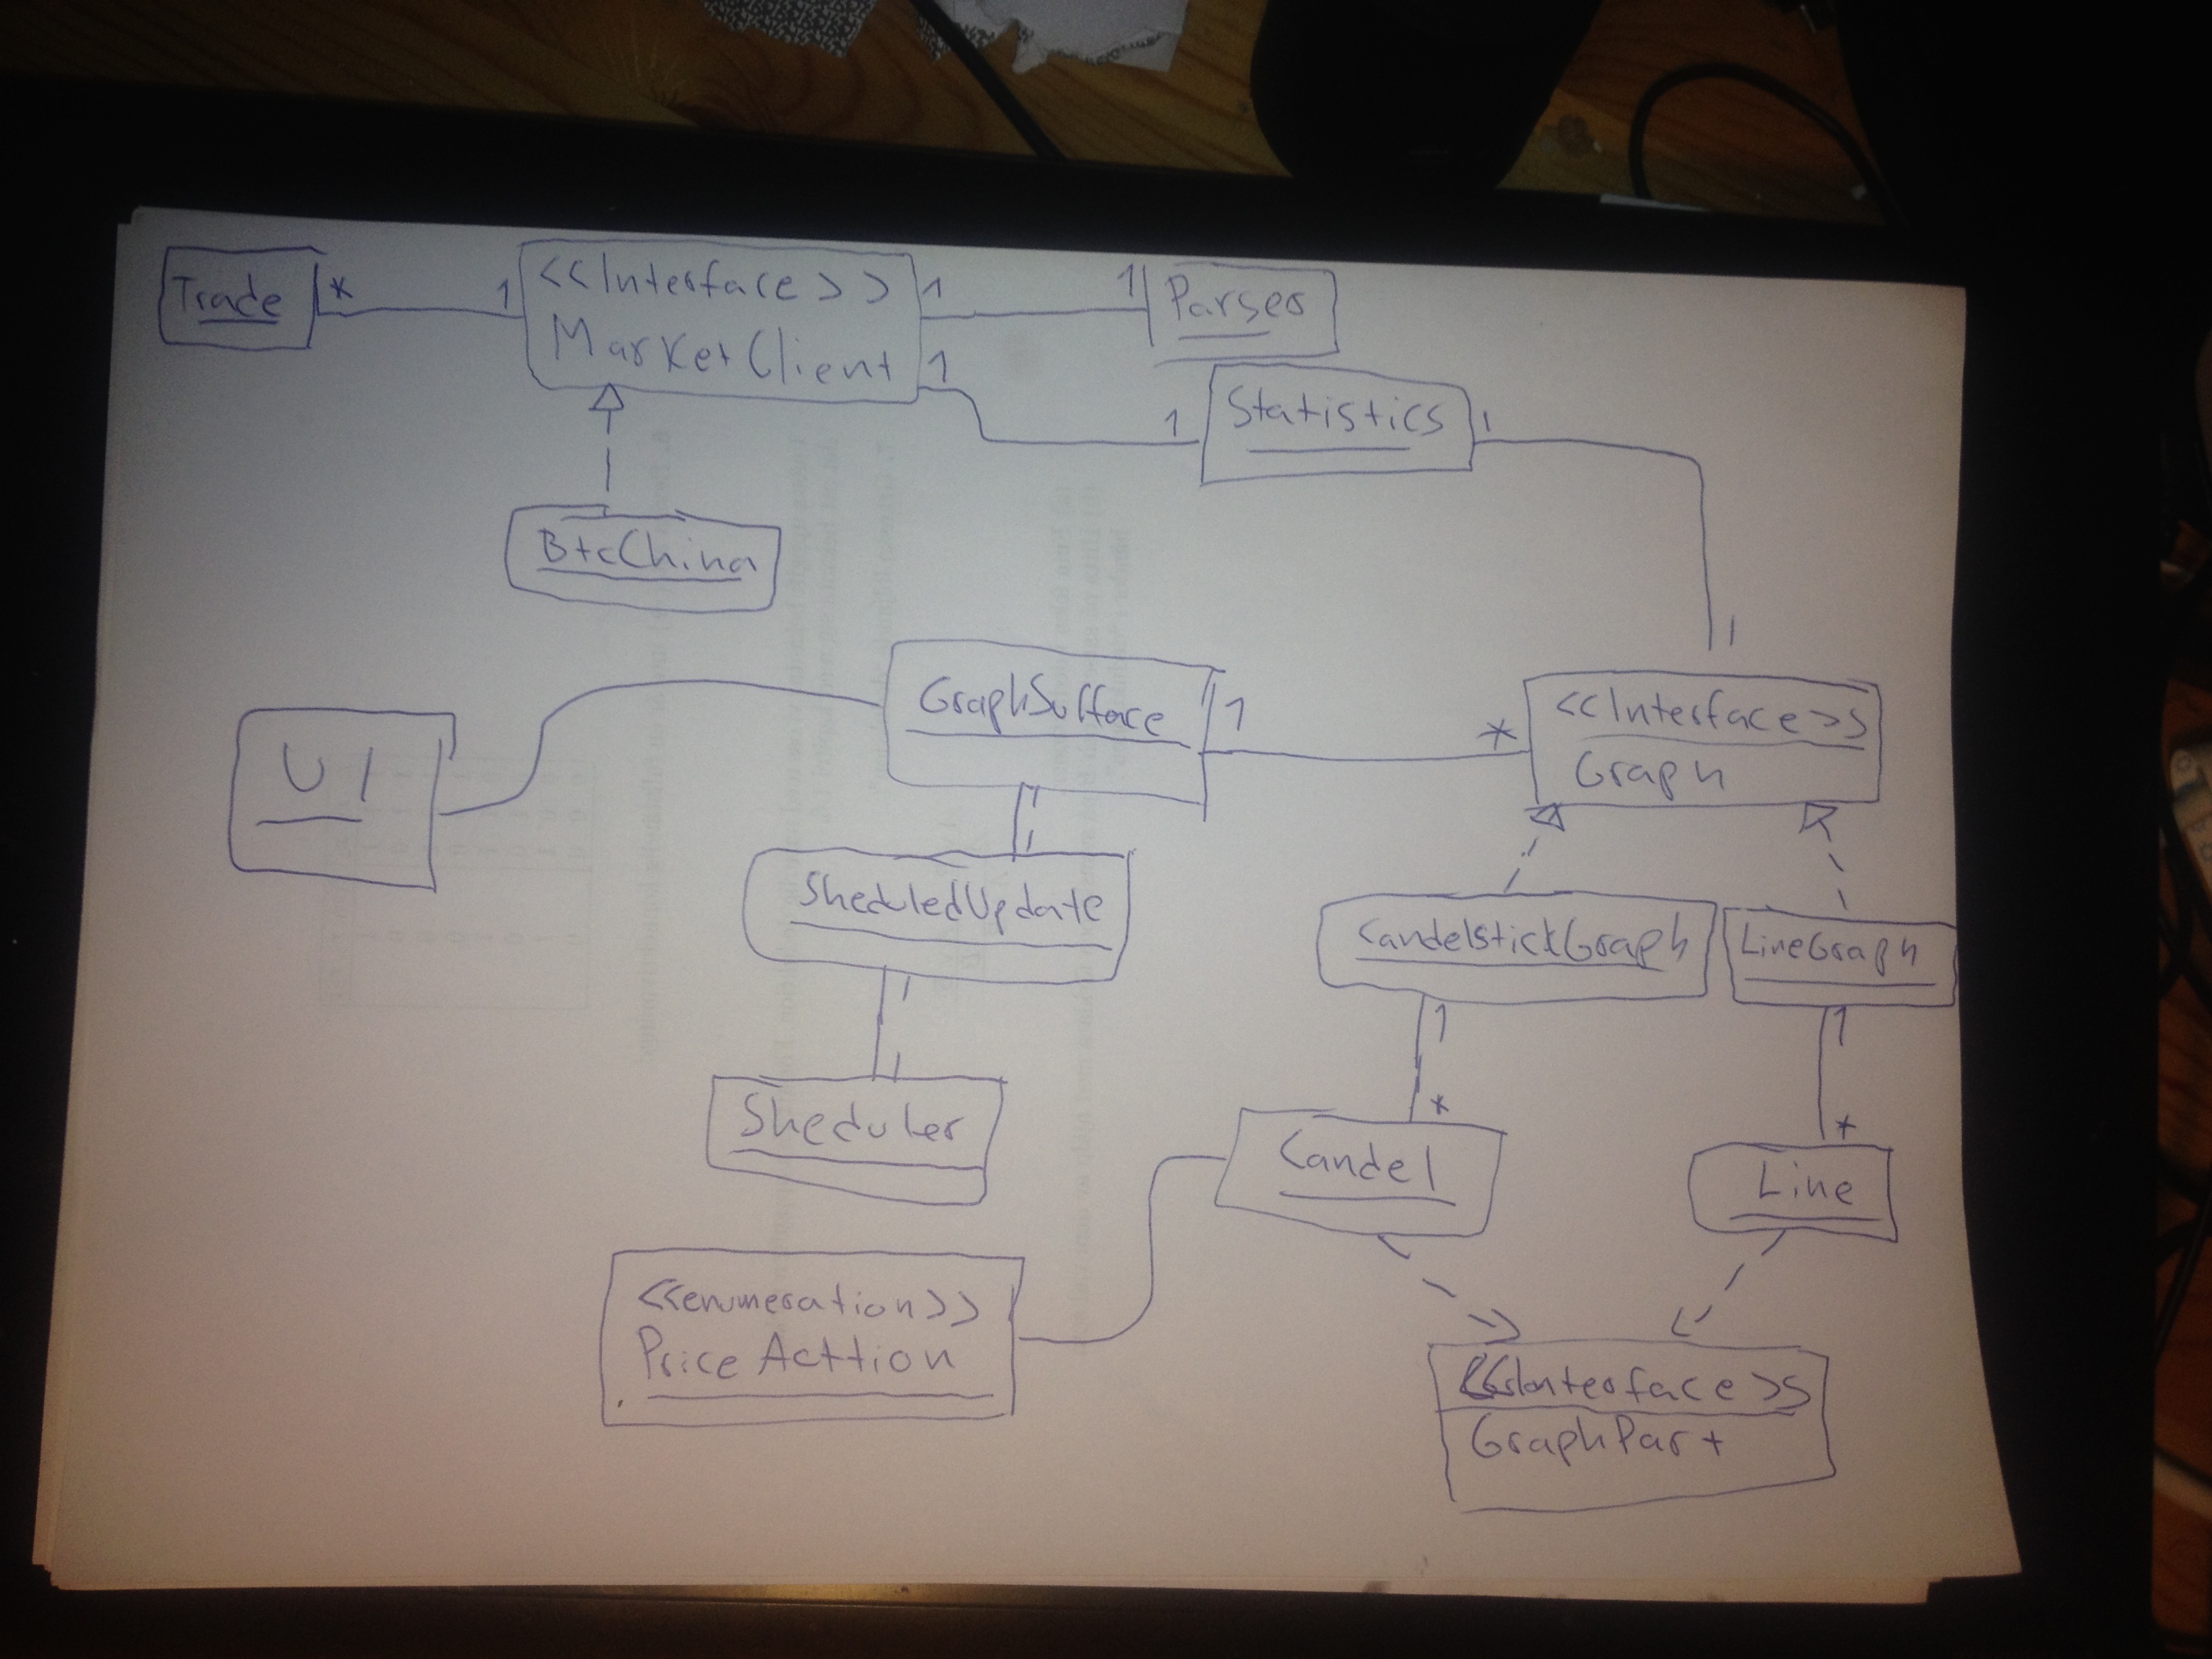 Trade
*
1
<<Interface>>
MarketClient
1
1
Parser
1
1
Statistics
1
BtcChina
1
UI
GraphSurface
1
*
<<Interface>>
Graph
1
1
SheduledUpdate
1
1
Sheduler
CandelstickGraph
LineGraph
1
*
1
*
Candel
Line
<<enumeration>>
Price Acttion
<<Interface>>
GraphPart